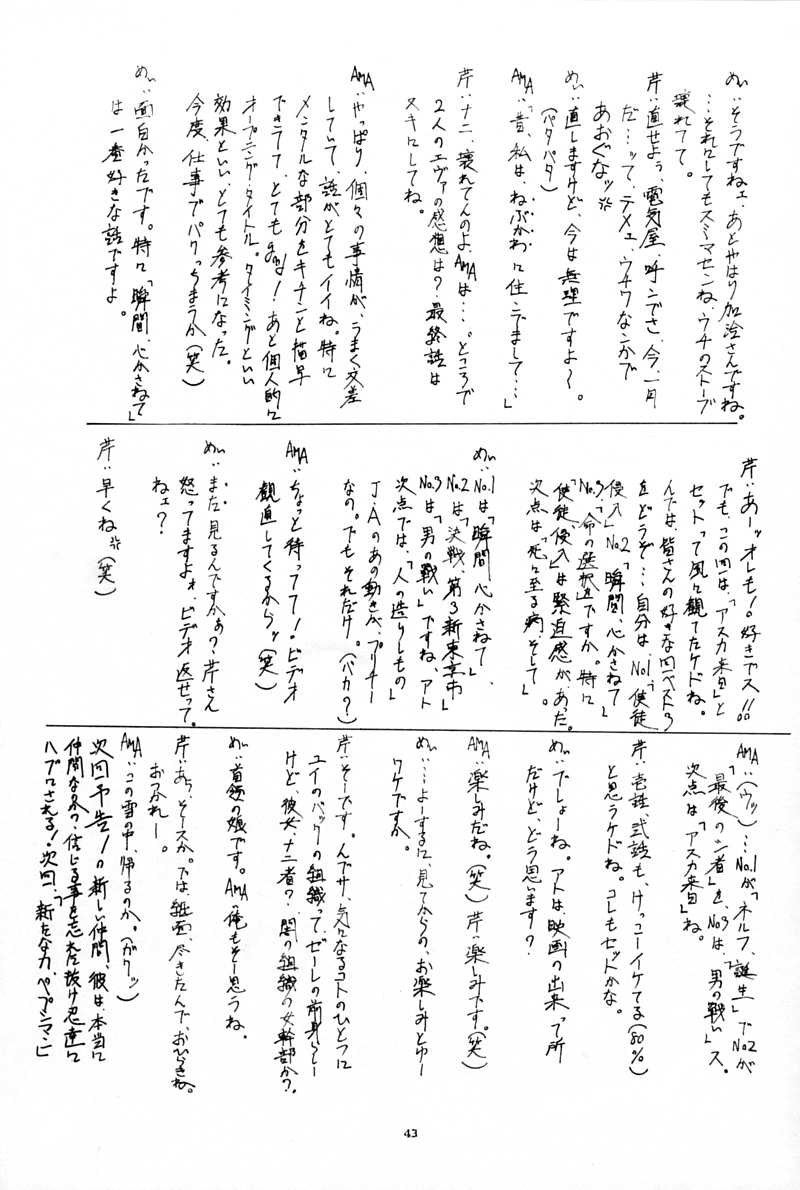 めぃ:そうですねェ、あとやはり加治さんですね。
…それにしてもスミマセンね、ウチのストーブ
壊れてて。
芹:直せよぅ、電気屋、呼ンでさ、今、一月
だ…ッて、テメェ、ウチワなンかで
あおぐなッ
めぃ:直しますけど、今は無理ですよ〜。
(パタパタ)
AMA:「昔、私は、ねぶかわに住ンでまして…」
芹:ナニ、壊れてんのよ、AMAは…。ところで
2人のエヴァの感想は?最終話は
ヌキにしてね。
AMA:やっぱり、個々の事情が、うまく交差
していて、話がとてもイイね。特に
メンタルな部分をキチンと描写
できてて、とてもgood!あと個人的に
オープニング・タイトル。タイミングといい
効果といい、とても参考になった。
今度、仕事でパクっちまうか(笑)
めぃ:面白かったです。特に「瞬間、心かさねて」
は一番好きな話ですよ。
芹:あーッオレも!好きでス!!
でも、この回は、「アスカ来日」と
セットって風に観てたケドね。
んでは、皆さんの好きな回ベスト3
をどうぞ…自分は、No.1「使徒
侵入」No.2「瞬間、心かさねて」
No.3「命の選択を」ですか。特に
「使徒、侵入」は緊迫感が、あった。
次点は「死に至る病、そして」
めぃ:No.1は「瞬間、心かさねて」、
No.2は「決戦、第3新東京市」
No.3は「男の戦い」ですね、アト
次点では、「人の造りしもの」
J・Aのあの動きが、プリチー
なの。でもそれだけ。(バカ?)
AMA:ちょっと待ってて!ビデオ
観直してくるからッ(笑)
めぃ:まだ見るんですかぁ?芹さん
怒ってますよォ、ビデオ返せって。
ねェ?
芹:早くね(笑)
AMA:(ウッ)…No.1が「ネルフ、誕生」でNo.2が
「最後のシ者」を、No.3は、「男の戦い」ス。
次点は「アスカ来日」ね。
芹:壱話、弐話も、けっこーイケてる(80%)
と思うケドね。コレもセットかな。
めぃ:でしょーね。アトは、映画の出来って所
だけど、どう思います?
AMA:楽しみだね。(笑)芹:楽しみです。(笑)
めぃ:…よーするに、見てからの、お楽しみとゆー
ワケですか。
芹:そーです。んでサ、気になるコトのひとつに
ユイのバックの組織って、ゼーレの前身らしー
けど、彼女、ナニ者?闇の組織の女幹部か?
めぃ:首領の娘です。AMA:俺もそー思うね。
芹:あっ、そースか。では、紙面、尽きたんで、おひらきね。
おつかれー。
AMA:この雪の中、帰るのか。(ガクッ)
次回予告!の新しい仲間、彼は、本当に
仲間なのか、信じる事を忘れた抜け忍達に
ハブにされる!次回、「新たな力、ペプシマン」
43